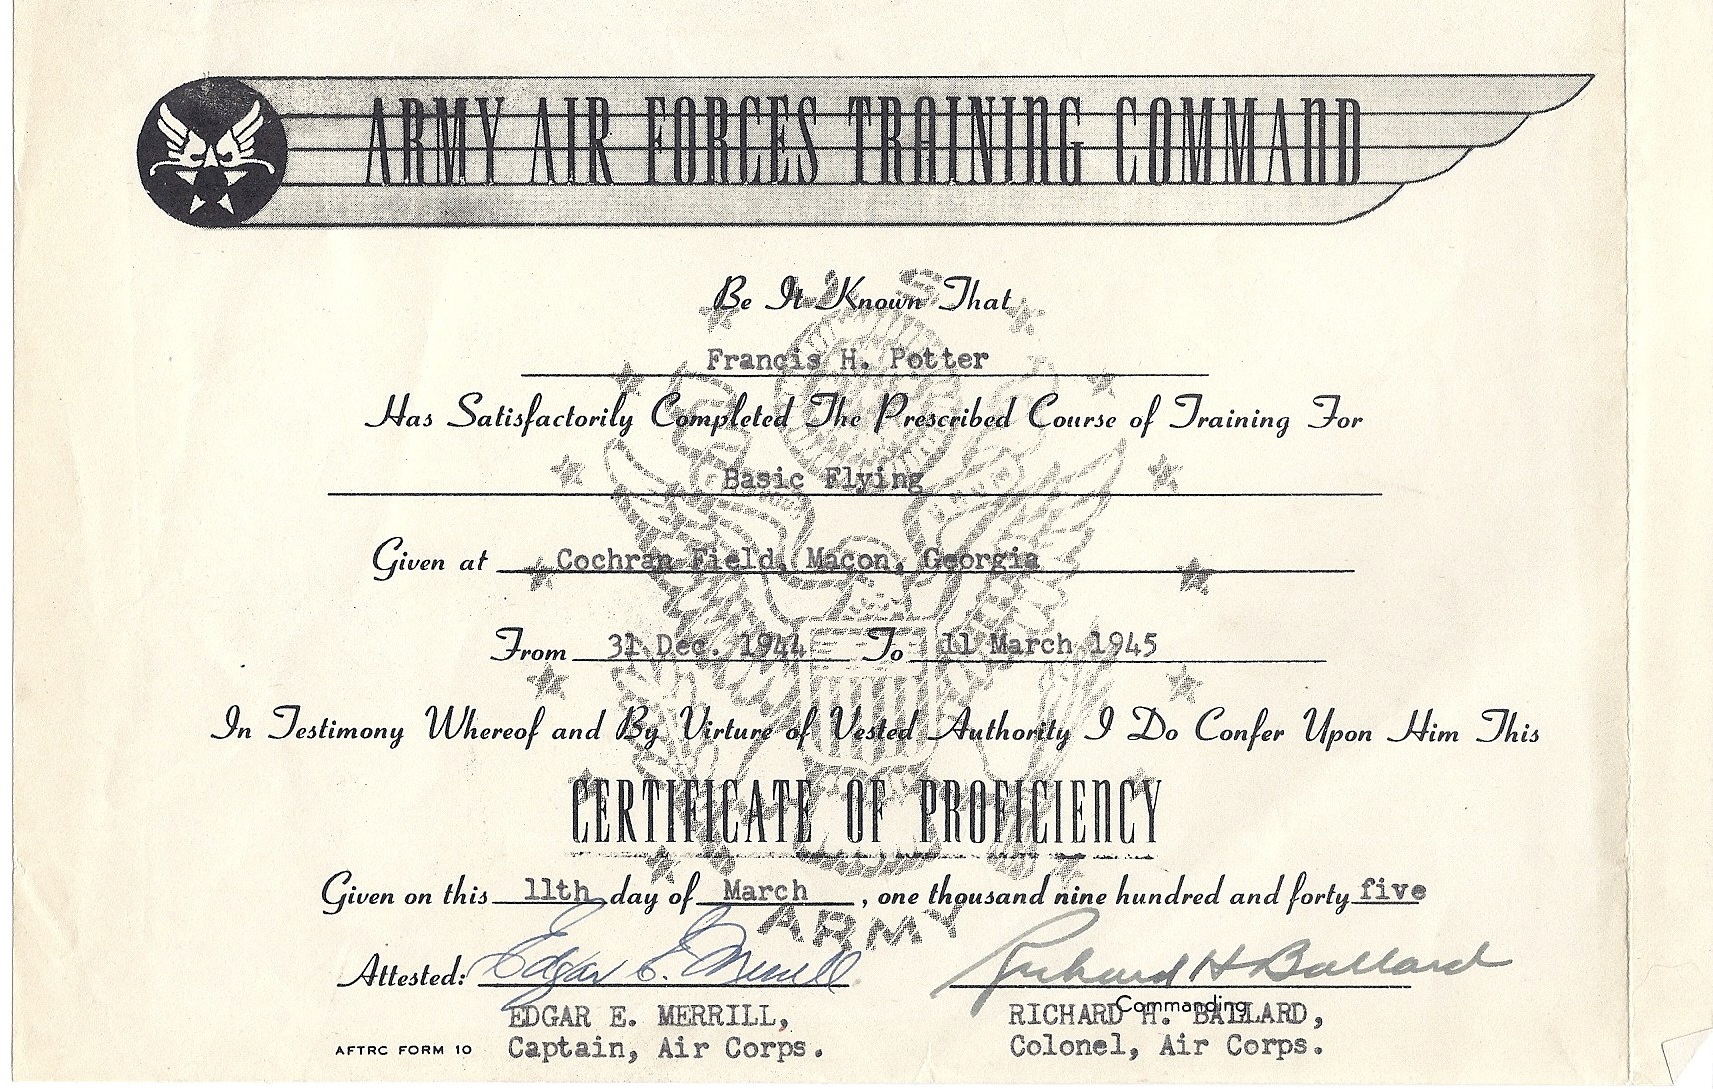 ARMY AIR FORCES TRAINING COMMAND
Be It Known That
Francis H. Potter
Has Satisfactorily Completed The Prescribed Course of Training For
Basic Flying
Given at Cochran Field, Macon, Georgia
From 31 Dec. 1944 To 11 March 1945
In Testimony Whereof and By Virtue of Vested Authority I Do Confer Upon Him This
CERTIFICATE OF PROFICIENCY
Given on this 11th day of March, one thousand nine hundred and forty five
ARMY
Attested: Edgar E. Merrill Richard H Ballard
Commanding
EDGAR E. MERRILL, RICHARD H. BALLARD,
AFTRC FORM 10 Captain, Air Corps. Colonel, Air Corps.